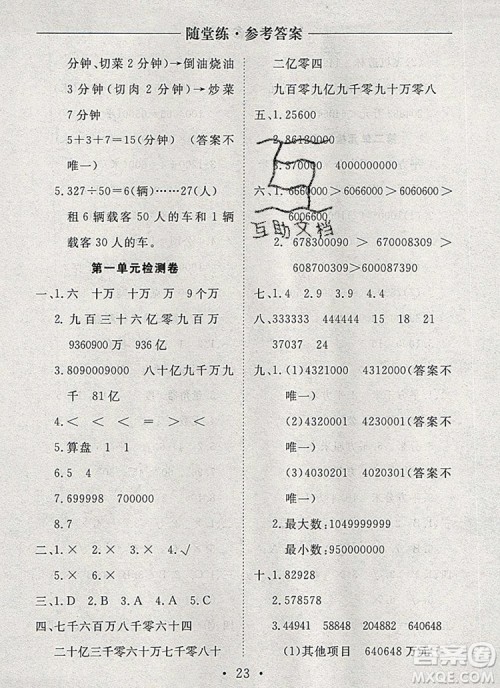 随堂练·参考答案
分钟、切菜 2 分钟)→倒油烧油
3 分钟(切肉 2 分钟)→炒菜
7 分钟
5+3+7=15(分钟) (答案不
唯一)
5.327÷50=6(辆)……27(人)
租 6 辆载客 50 人的车和 1 辆
载客 30 人的车。
第一单元检测卷
一、1.六 十万 十万 万 9个万
2.九百三十六亿零九百九十万
9360000万 936亿
3.8090009000 八十亿九千万九
千 81亿
4.< < = > <
5.算盘 1 1 4
6.5 4
7.699998 700000
8.7
二、1.× 2.× 3.× 4.× 5.√
6.× 7.× 8.×
三、1.D 2.B 3.A 4.A 5.C
四、七千六百万八千零六十四
二十亿三千零六十万七千零八十
二亿零四
九百零九亿九千零九十万零八
五、1.25600
2.86120000
3.370000 4000000000
六、1.6660000>6066000>6060600>
6006600
2.678300090>670008309>
608700309>608309007
七、1.4 2.9 3.9 4.4
八、333333 444444 15 18 21
37037 24 27
九、1.(1)4320000 4312000(答案不
唯一)
(2)4320001 4321000(答案不
唯一)
(3)4030201 4020301(答案不
唯一)
2.最大数:1049999999
最小数:950000000
十、1.82928
2.578578
3.44941 64048 24848 640648
(1)其他项目 640648 万元
· 23 ·
互助文档